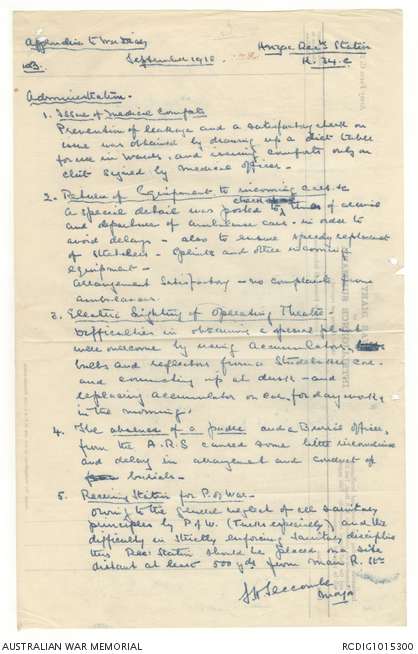 Appendix to War Diary
September 1918
Administration.
1. Issue of Medical Comforts
Prevention of leakage and a satisfactory check on
issue was obtained by drawing up a diet table
for use in wards, and issuing comforts only on
chit signed by medical officer.
2. Return of Equipment to incoming
A special detail was posted to check times of arrival
and departure of ambulance cars in order to
avoid delays - also to ensure speedy replacement
of stretchers - splints and other incoming
equipment -
Arrangement Satisfactory - no complaints from
ambulances.
3. Electric Lighting of Operating Theatre -
Difficulties in obtaining a special plant
were overcome by using Accumulators,
bulbs and reflectors from a Studebaker car
and connecting up at dusk - and
replacing accumulator on car for day work
in the morning.
4. The absence of a padre and a Burial officer
from the A.R.S caused some little inconvenience
and delay in arrangement and conduct of
burials.
5. Receiving Station for P. of War -
Owing to the general neglect of all sanitary
principles by P of W. (Turks especially) and the
difficulty in strictly enforcing sanitary discipline
this Rec: Station should be placed on a site
distant at least 500 yds from main R. Stn
Major
AUSTRALIAN WAR MEMORIAL
RCDIG1015300